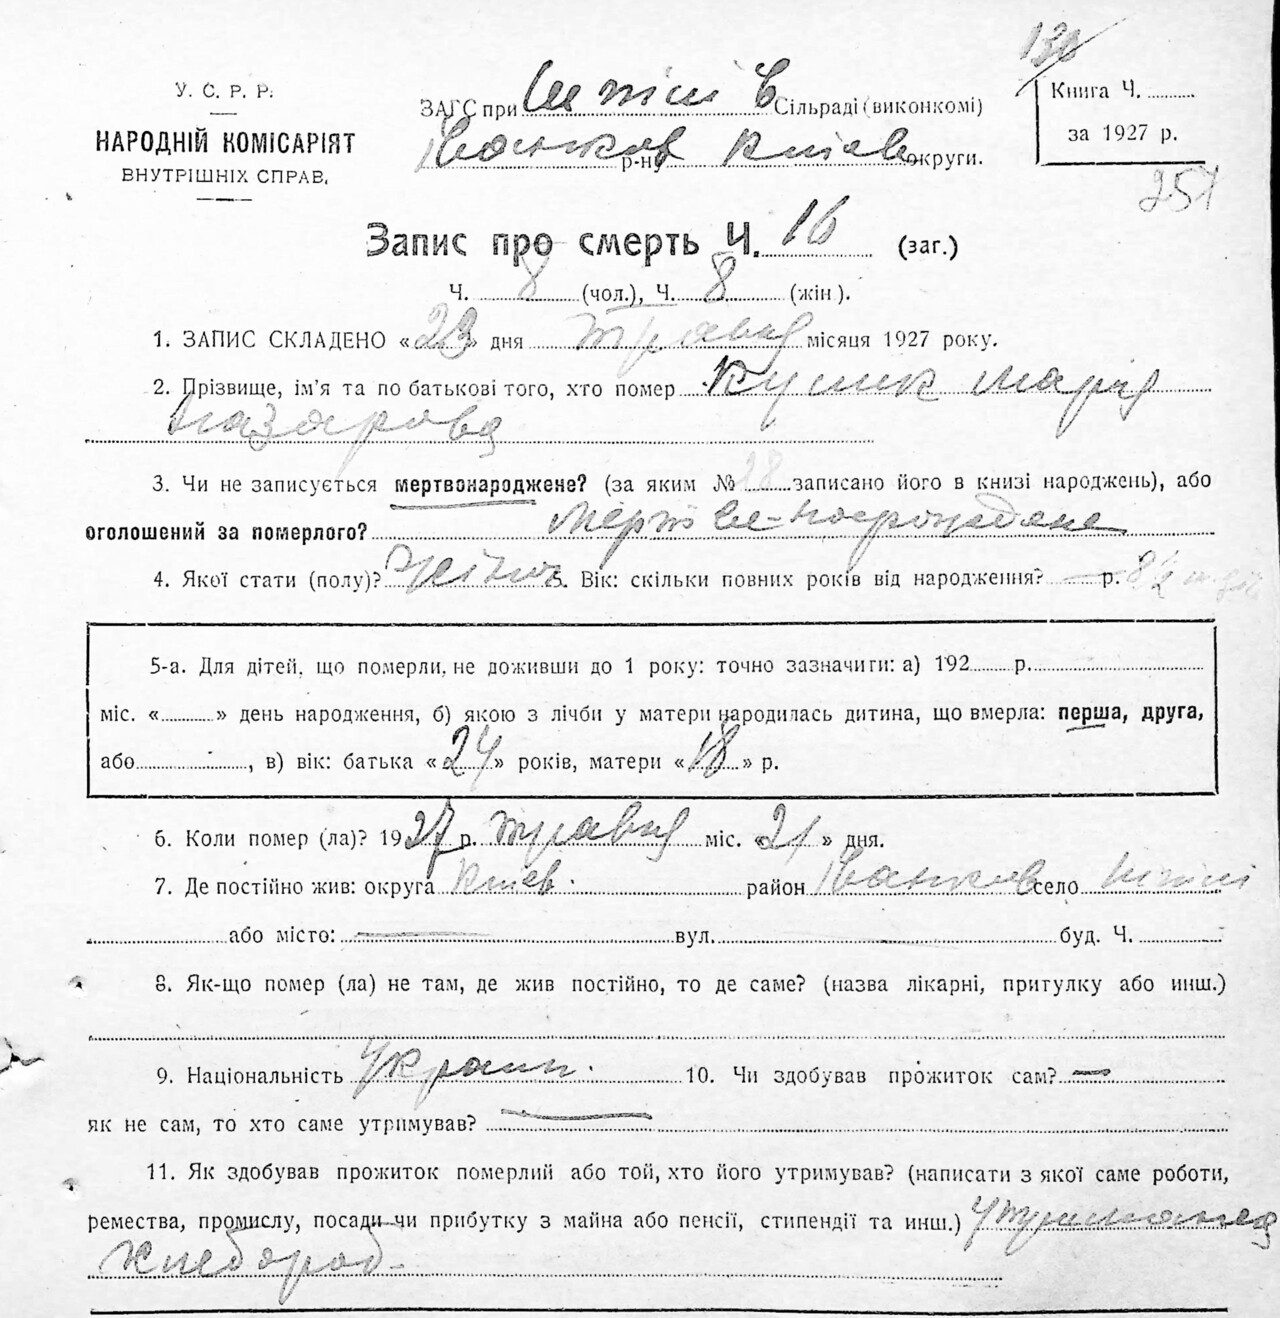 136
У. С. Р. Р.
НАРОДНІЙ КОМІСАРІЯТ
ВНУТРІШНІХ СПРАВ.
ЗАГС при Шпілів Сільраді (виконкомі)
Іванков р-ну Київ округи.
Книга Ч. ..........
за 1927 р.
251
Запис про смерть Ч. 16 (заг.)
Ч. 8 (чол.), Ч. 8 (жін).
1. ЗАПИС СКЛАДЕНО «23» дня травня місяця 1927 року.
2. Прізвище, ім'я та по батькові того, хто помер Кулик Марія
Назарова
3. Чи не записується мертвонароджене? (за яким № 28 записано його в книзі народжень), або
оголошений за померлого?
4. Якої стати (полу)? 5. Вік: скільки повних років від народження? — р.
5-а. Для дітей, що померли, не доживши до 1 року: точно зазначити: а) 192...... р.
міс. «..........» день народження, б) якою з лічби у матери народилась дитина, що вмерла: перша, друга,
або...................., в) вік: батька «24» років, матери «18» р.
6. Коли помер (ла)? 1927 р. травня міс. «21» дня.
7. Де постійно жив: округа Київ. район Іванков село
або місто: — вул. буд. Ч.
8. Як-що помер (ла) не там, де жив постійно, то де саме? (назва лікарні, притулку або инш.)
9. Національність Україн. 10. Чи здобував прожиток сам? —
як не сам, то хто саме утримував? —
11. Як здобував прожиток померлий або той, хто його утримував? (написати з якої саме роботи,
ремества, промислу, посади чи прибутку з майна або пенсії, стипендії та инш.)
Хлебороб